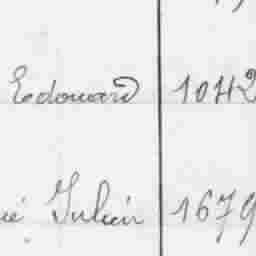 Edouard 1042
ié Julien 1679